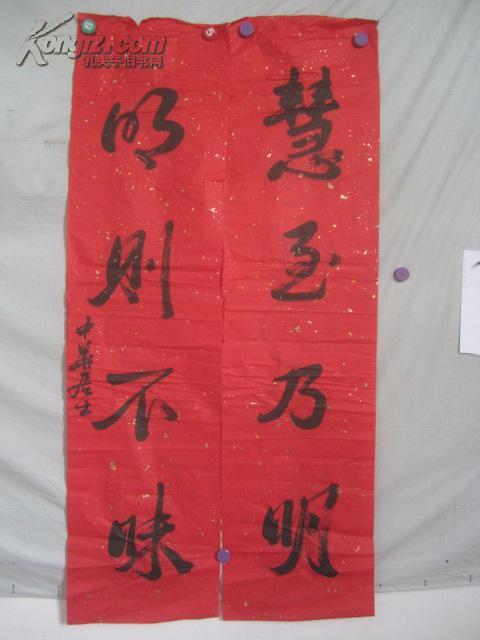 慧至乃明
明则不昧
中华居士
Kongfz.com
孔夫子旧书网
6
5